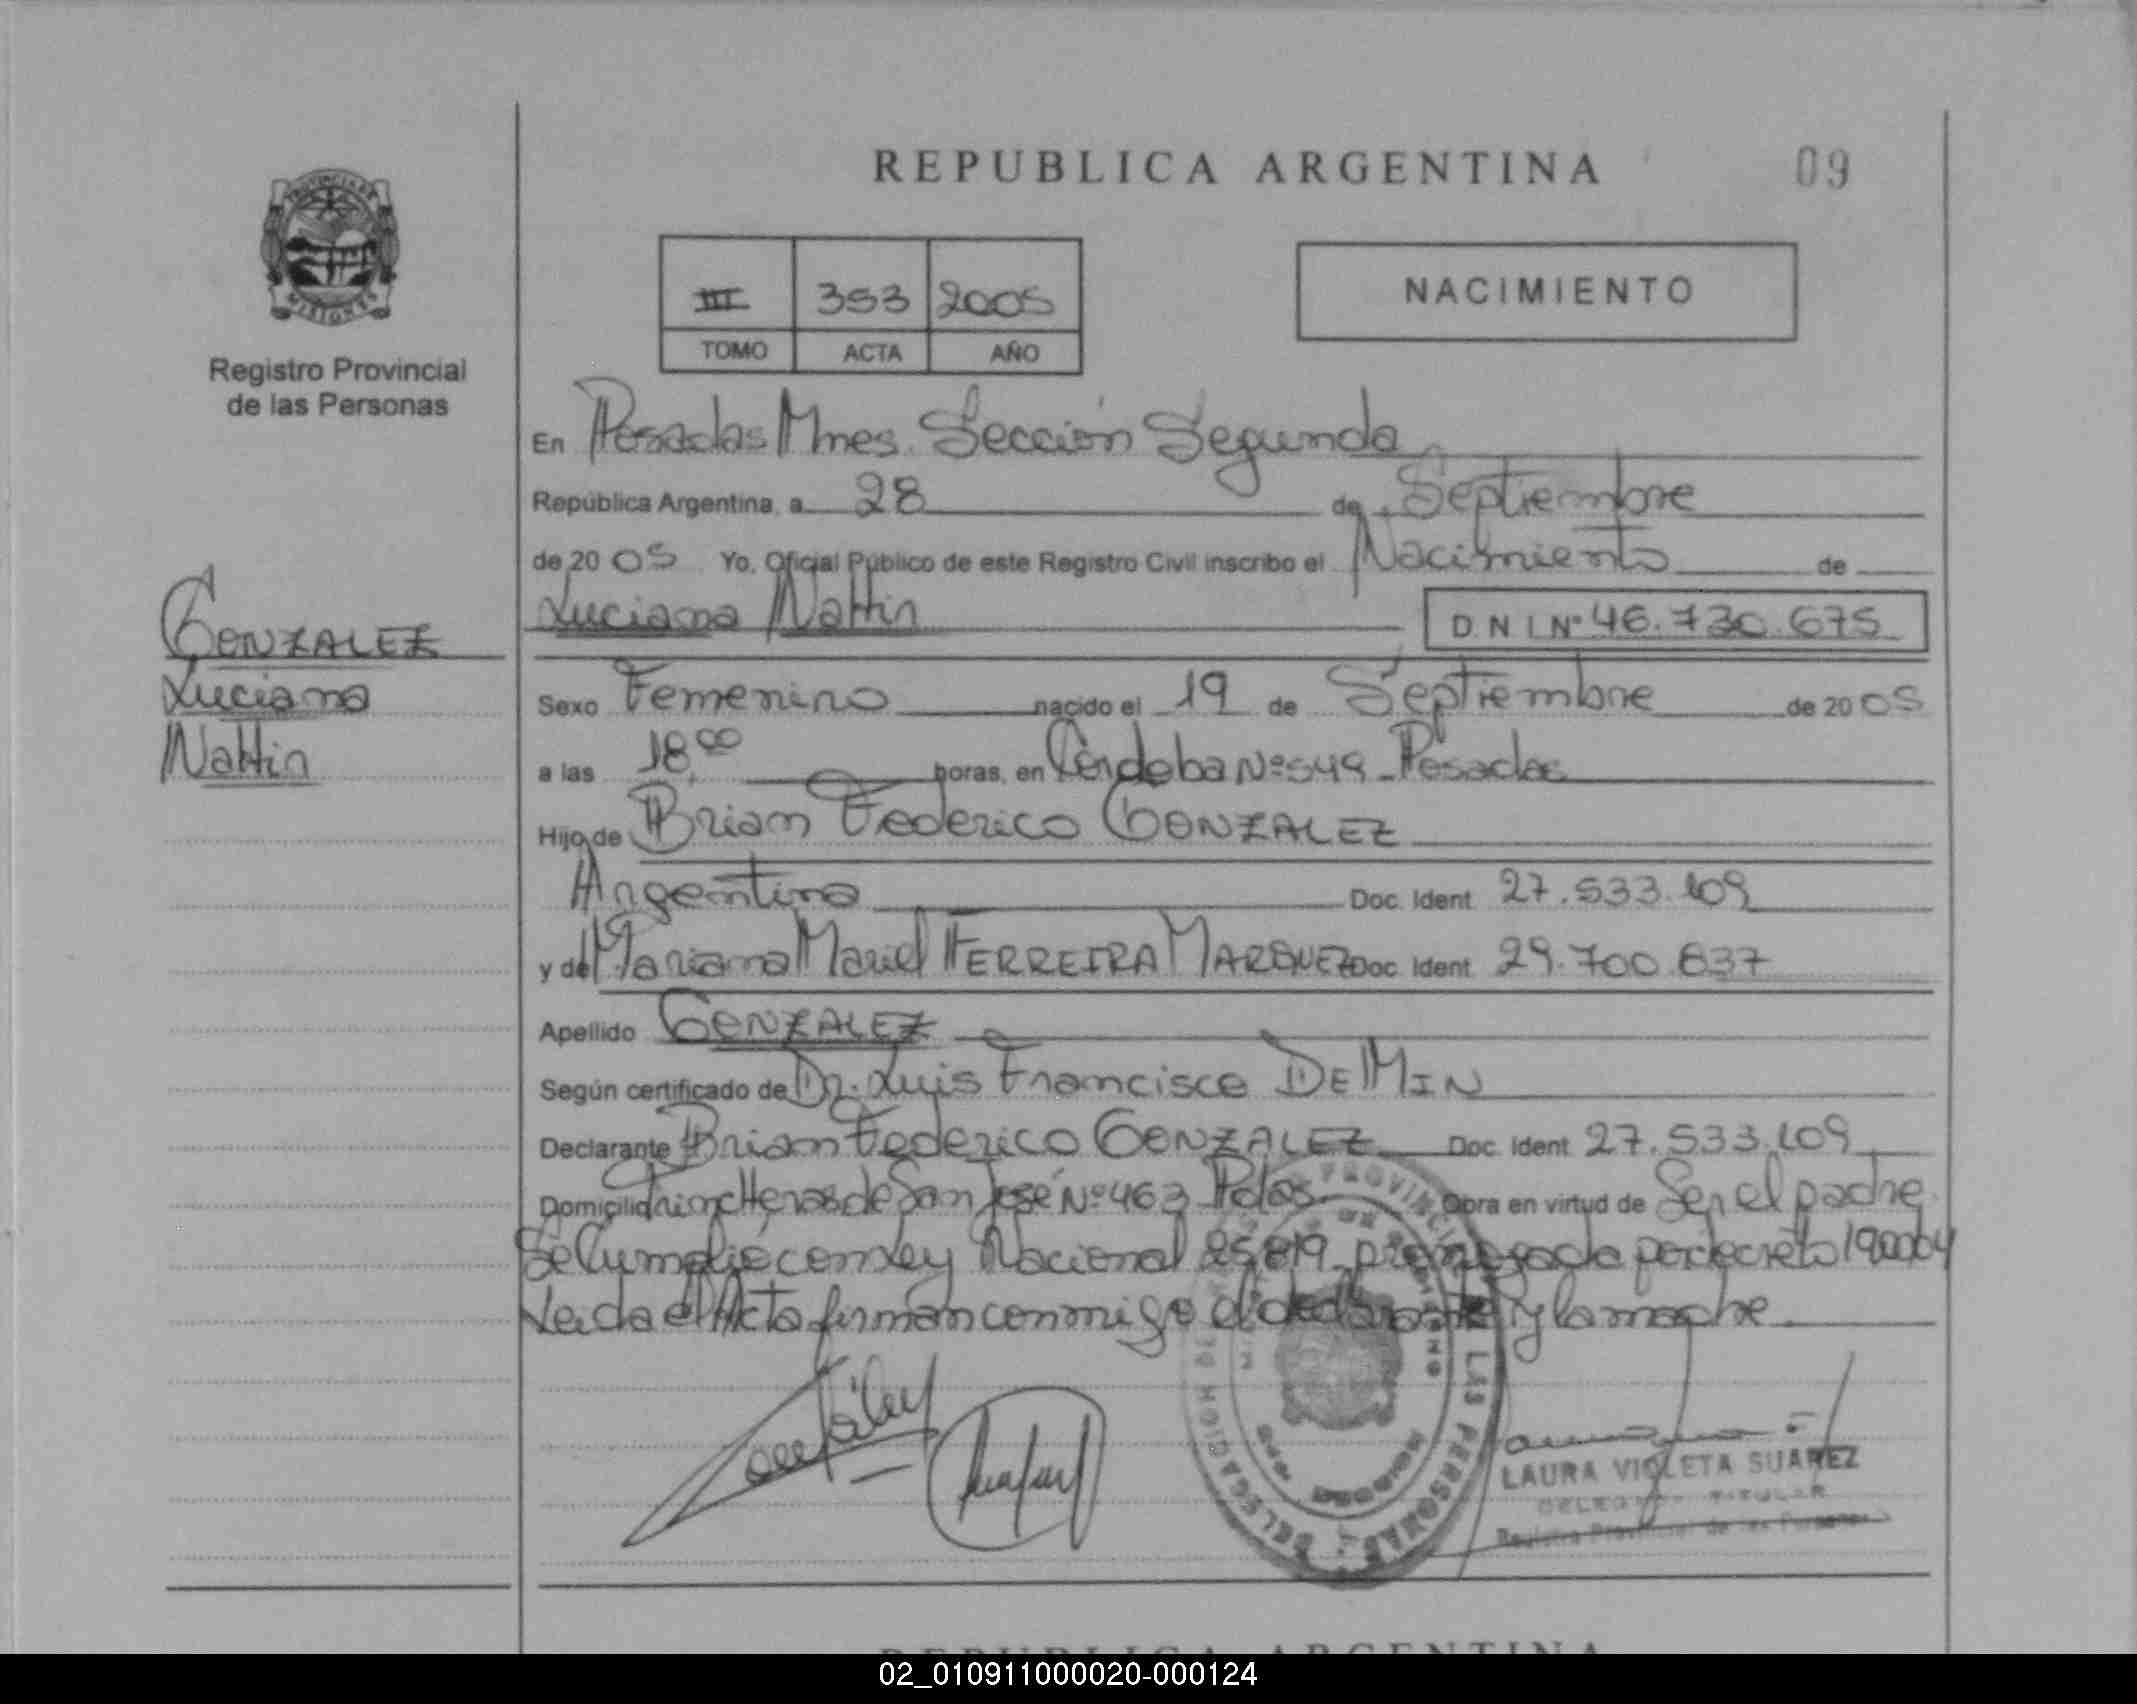 REPUBLICA ARGENTINA
09
PROVINCIA DE
MISIONES
Registro Provincial
de las Personas
III 353 2005
TOMO ACTA AÑO
NACIMIENTO
En Posadas Mnes. Sección Segunda
República Argentina, a 28 de Septiembre
de 2005 Yo, Oficial Público de este Registro Civil inscribo el Nacimiento de
Luciana Nattin
D N I Nº 46.730.675
GONZALEZ
Luciana
Nattin
Sexo Femenino nacido el 19 de Septiembre de 2005
a las 18,00 horas, en Córdoba Nº 549 - Posadas
Hijo de Brian Federico GONZALEZ
Argentina Doc. Ident 27.533.109
y de Mariana Mariel FERREIRA MARQUEZ Doc. Ident 29.700.637
Apellido GONZALEZ
Según certificado de Dr. Luis Francisco DEMIN
Declarante Brian Federico GONZALEZ Doc. Ident 27.533.109
Domicilio de San José Nº 463 Pdas. Obra en virtud de Ser el padre
Se Cumplió con Ley Nacional 25819 por decreto
Leida el Acta firman conmigo el declarante y la madre
LAURA VIOLETA SUAREZ
DELEGADA TITULAR
Registro Provincial de las Personas
REPUBLICA ARGENTINA
02_010911000020-000124